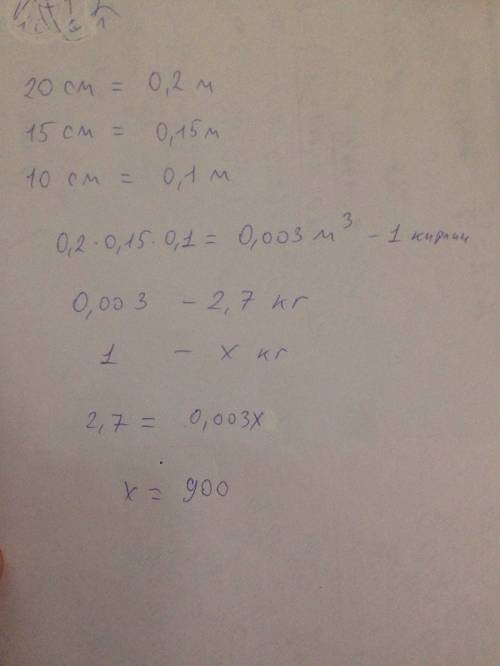 20 см = 0,2 м
15 см = 0,15 м
10 см = 0,1 м
0,2·0,15·0,1 = 0,003 м³ - 1 кирпич
0,003 - 2,7 кг
1 - х кг
2,7 = 0,003х
х = 900